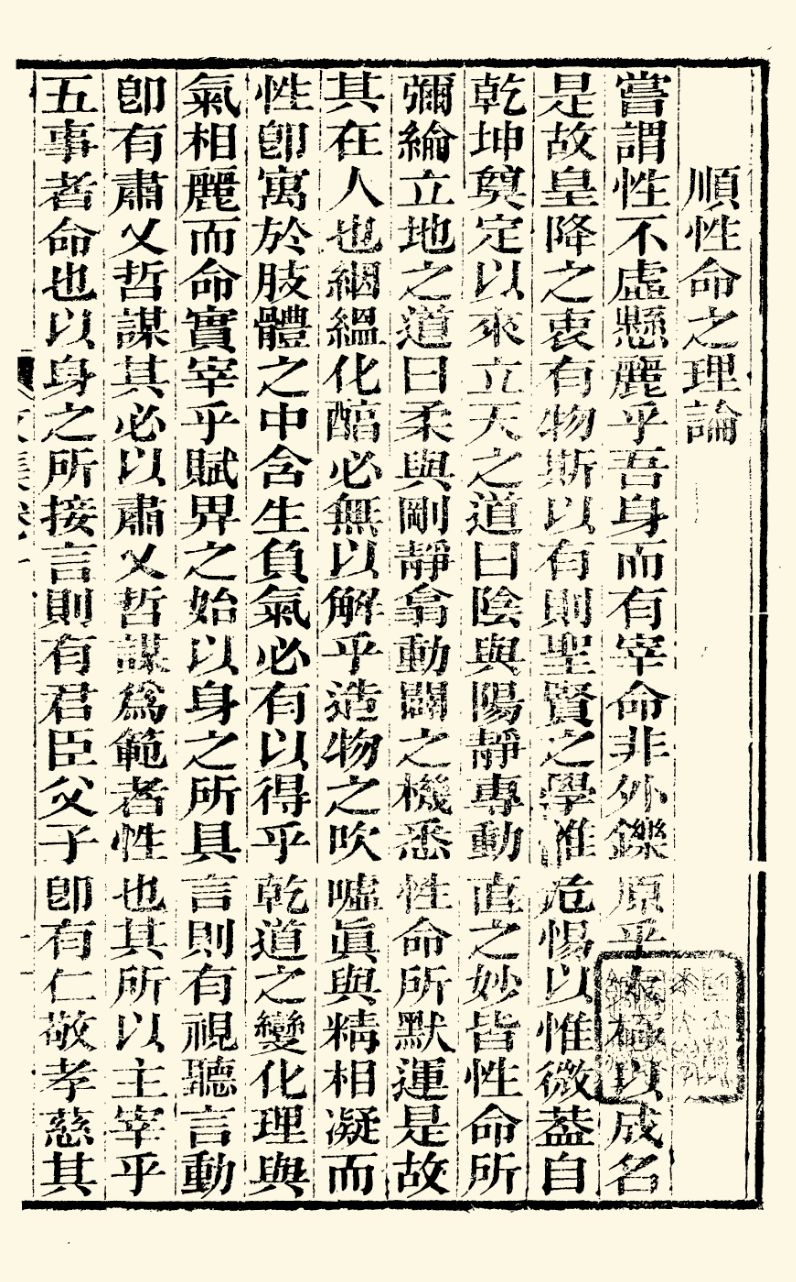 順性命之理論
嘗謂性不虛懸麗乎吾身而有宰命非外鑠原乎太極以成名
是故皇降之衷有物斯以有則聖賢之學惟危惕以惟微葢自
乾坤奠定以來立天之道曰陰與陽靜專動直之妙皆性命所
彌綸立地之道曰柔與剛靜翕動闢之機悉性命所默運是故
其在人也絪縕化醕必無以解乎造物之吹噓眞與精相凝而
性卽寓於肢體之中含生負氣必有以得乎乾道之變化理與
氣相麗而命實宰乎賦畀之始以身之所具言則有視聽言動
卽有肅乂哲謀其必以肅乂哲謀爲範者性也其所以主宰乎
五事者命也以身之所接言則有君臣父子卽有仁敬孝慈其